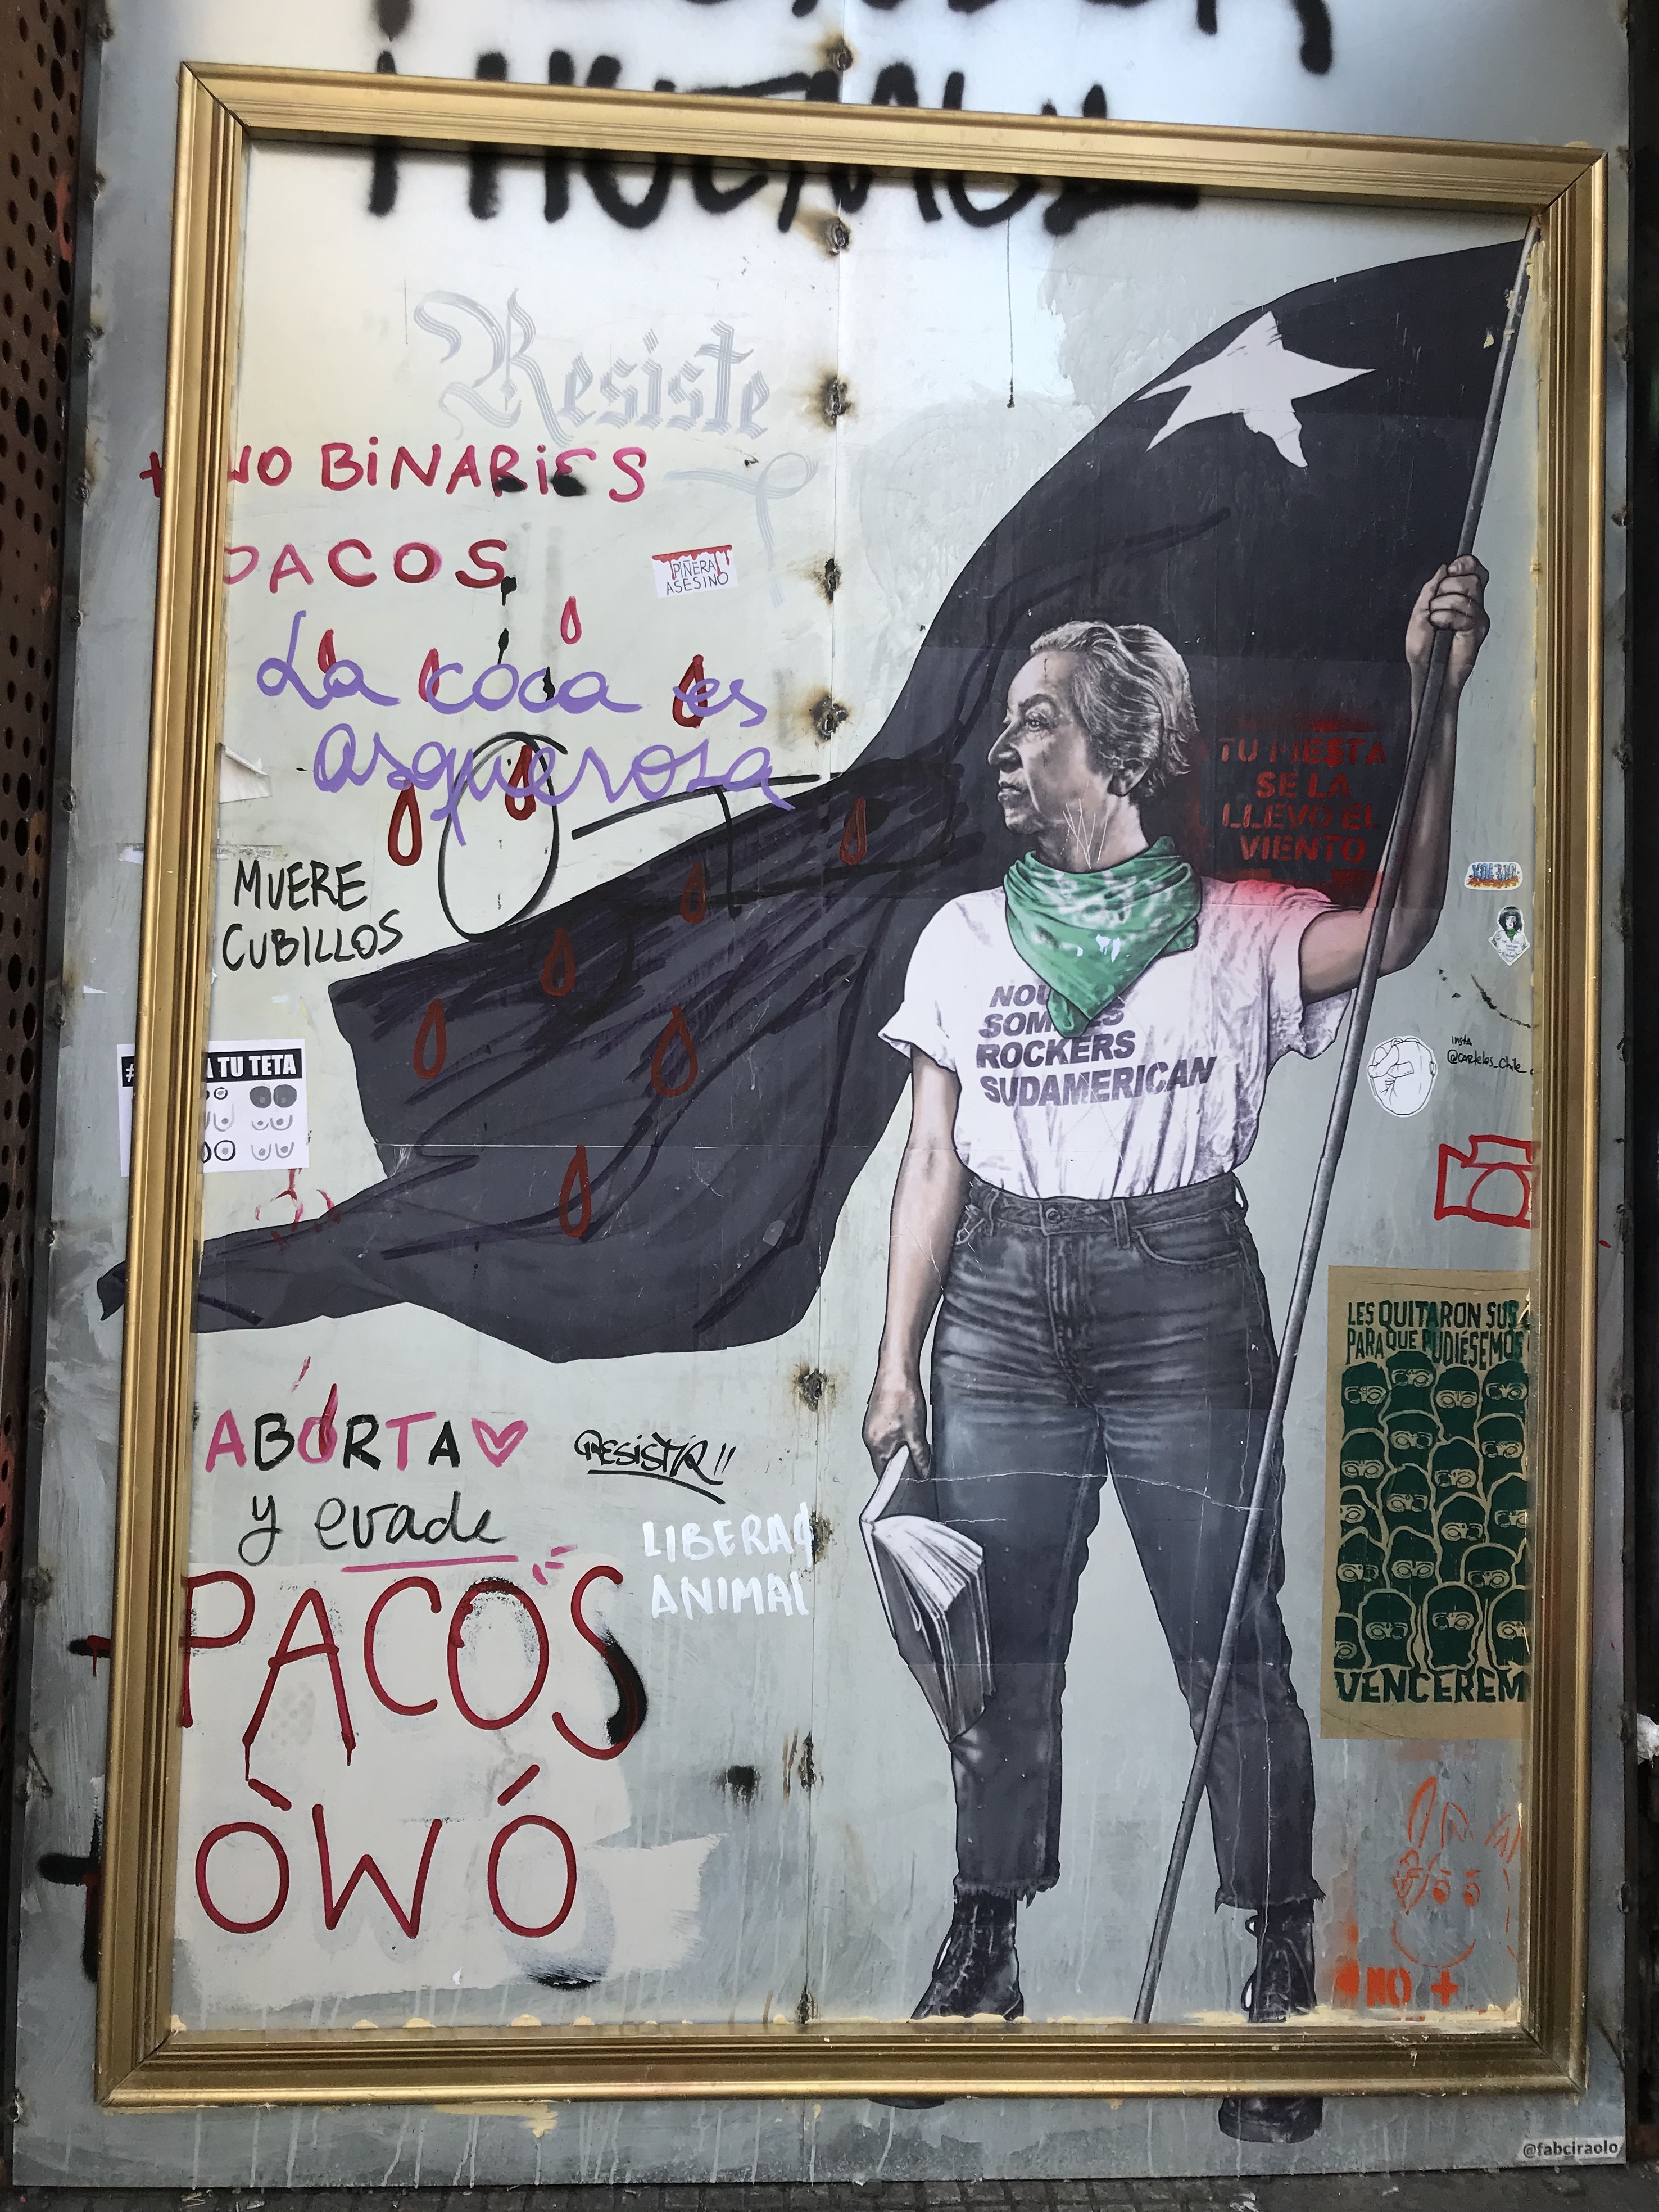 Resiste
+ NO BINARIES
PACOS
PIÑERA
ASESINO
La coca es
asquerosa
TU FIESTA
SE LA
LLEVO EL
VIENTO
MUERE
CUBILLOS
NOUS
SOMMES
ROCKERS
SUDAMERICAN
A TU TETA
insta
@carteles_chile
LES QUITARON SUS
PARA QUE PUDIÉSEMOS
VENCEREM
ABORTA
y evade
RESISTIR!!
LIBERA
ANIMAL
PACOS
ÒWÓ
NO +
@fabciraolo